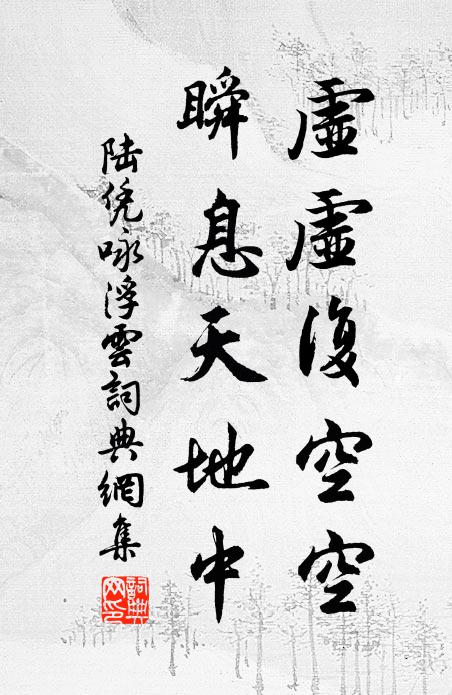 虛虛復空空
瞬息天地中
陸凭咏浮雲詞典網集
詞典網印